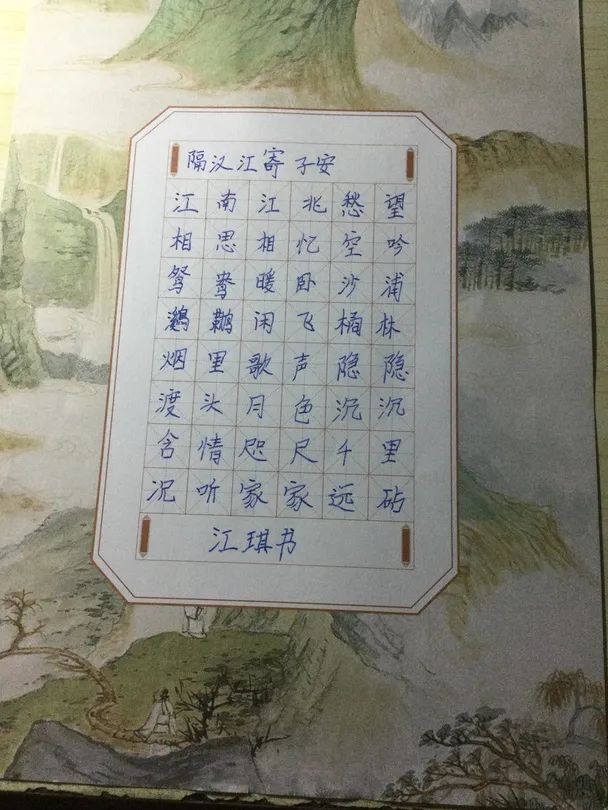 隔汉江寄子安
江南江北愁望
相思相忆空吟
鸳鸯暖卧沙浦
鸂鶒闲飞橘林
烟里歌声隐隐
渡头月色沉沉
含情咫尺千里
况听家家远砧
江琪书